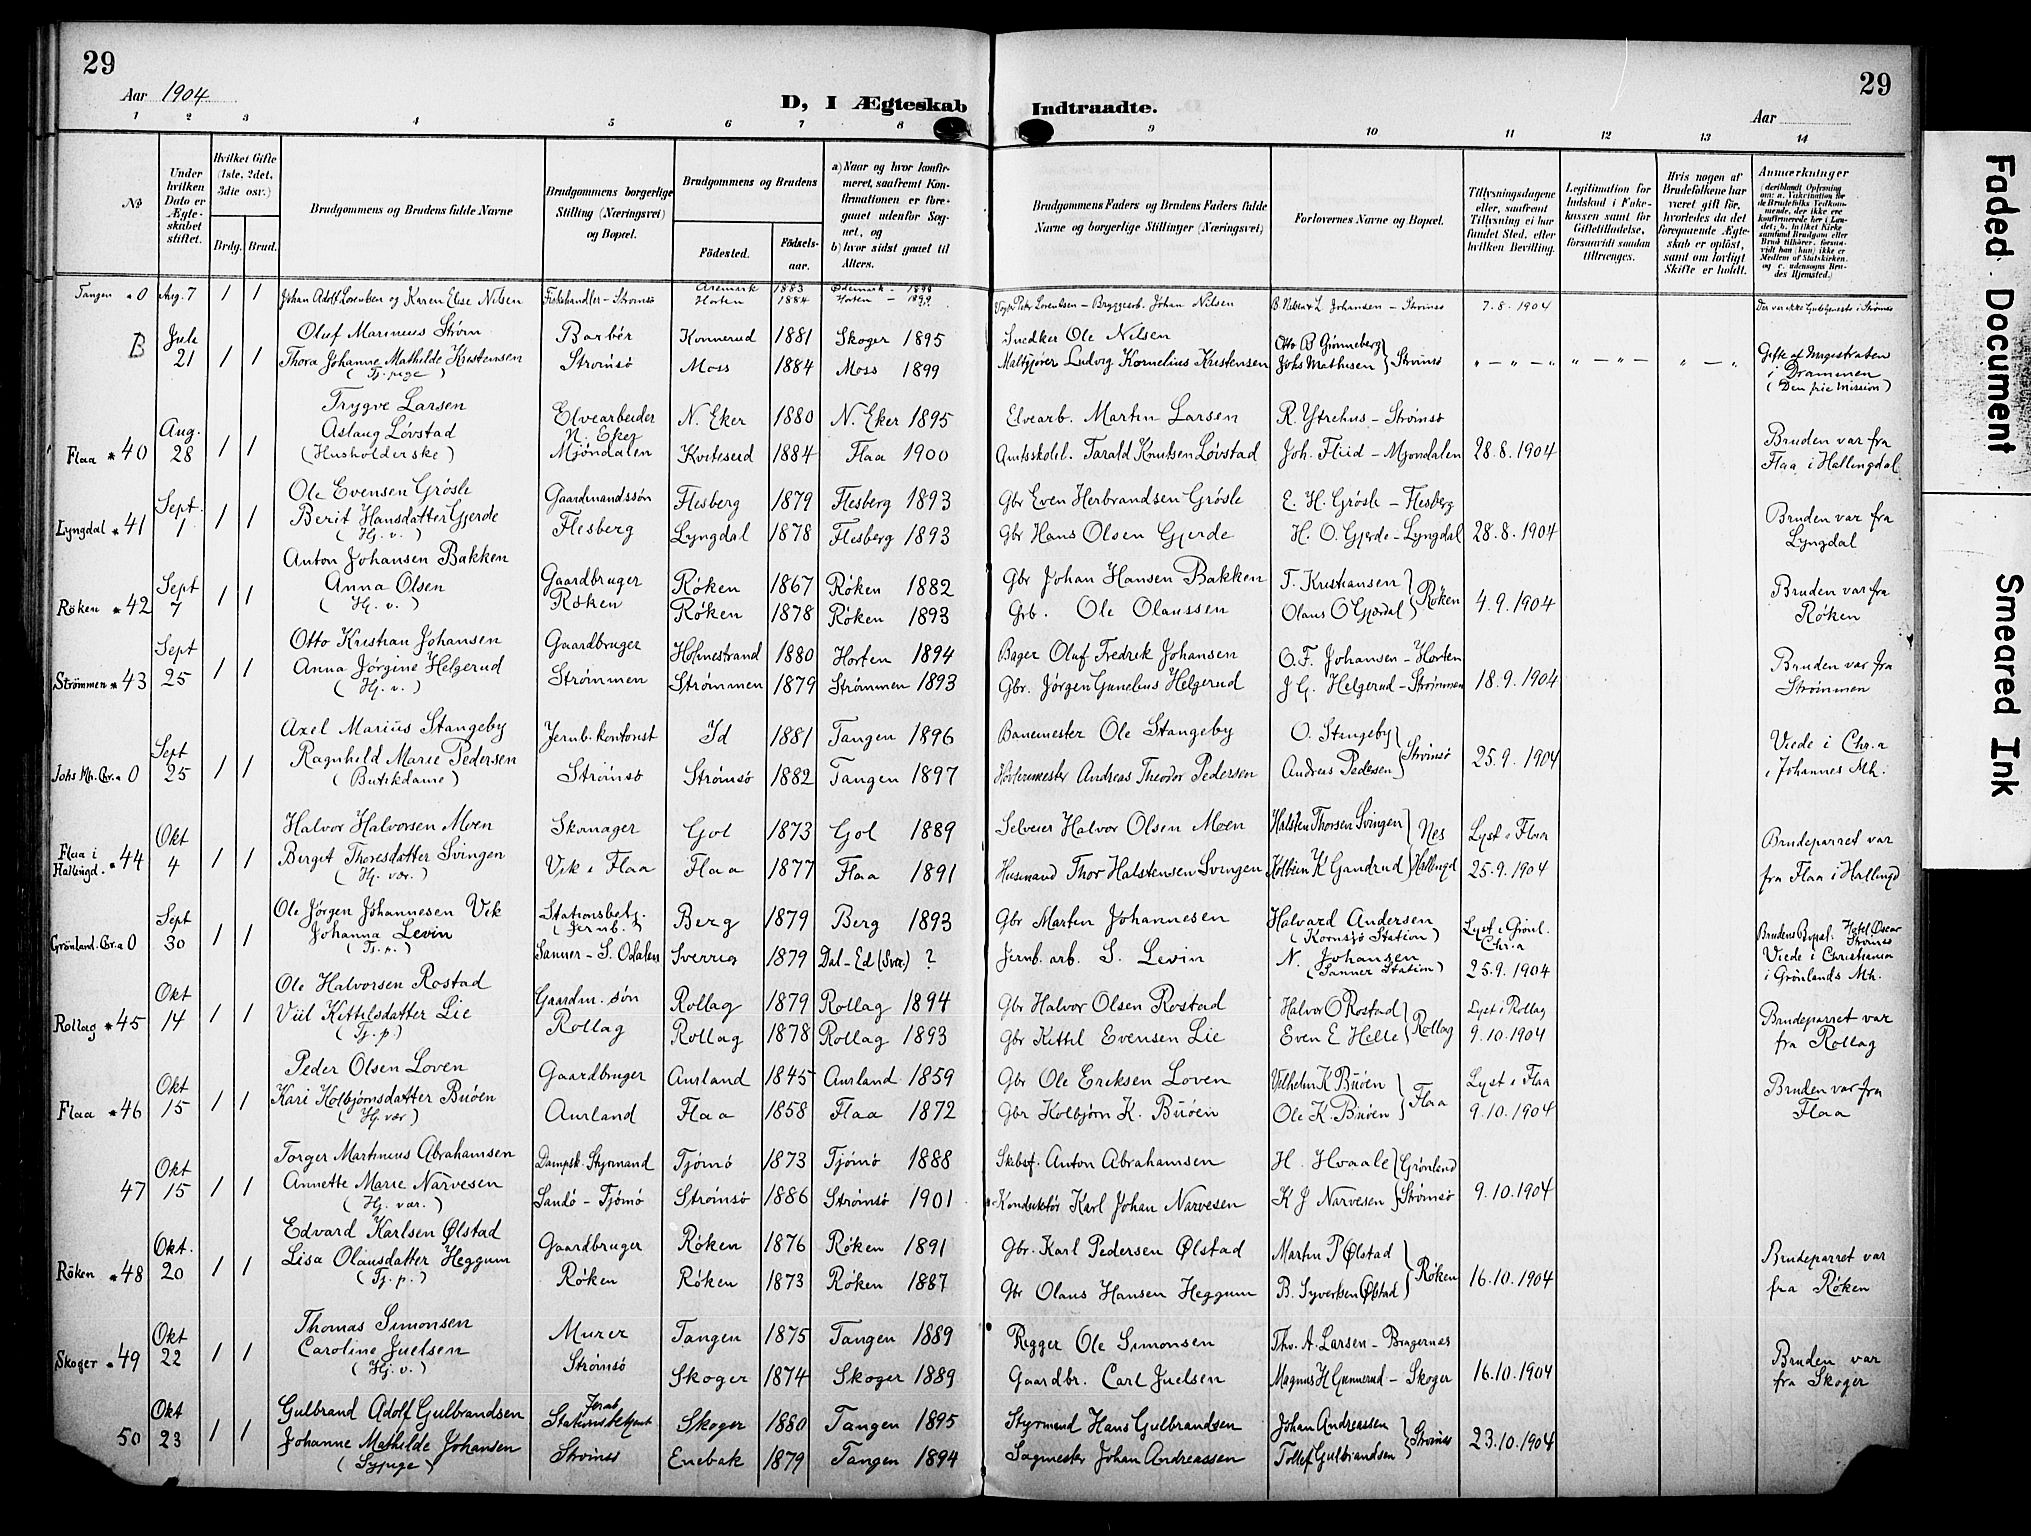 29
29
Aar 1904
D, I Ægteskab Indtraadte.
Aar
1 2 3 4 5 6 7 8 9 10 11 12 13 14
No
Under hvilken Dato er Ægteskabet stiftet.
Hvilket Gifte (1ste, 2det, 3die osv.)
Brdg. Brud.
Brudgommens og Brudens fulde Navne
Brudgommens borgerlige Stilling (Næringsvei) og Bopæl.
Brudgommens og Brudens
Fødested. Fødselsaar.
a) Naar og hvor konfirmeret, saafremt Konfirmationen er foregaaet udenfor Sognet, og
b) hvor sidst gaaet til Alters.
Brudgommens Faders og Brudens Faders fulde Navne og borgerlige Stillinger (Næringsvei)
Forlovernes Navne og Bopæl.
Tillysningsdagene eller, saafremt Tillysning ei har fundet Sted, efter hvilken Bevilling.
Legitimation for Indskud i Enkekassen samt for Giftetilladelse, forsaavidt saadan tiltrænges.
Hvis nogen af Brudefolkene har været gift før, hvorledes da det foregaaende Ægteskab er opløst, samt om lovligt Skifte er holdt.
Anmærkninger
Tangen * 0 Aug. 7 1 1 Johan Adolf Lorentsen og Karen Elise Nilsen Fiskehandler - Strømsø Aremark 1883 Ødemark - 1898
Horten 1884 Horten - 1899 Johan Nilsen B. Nielsen & L. Johansen - Strømsø 7.8.1904
B Juli 21 1 1 Oluf Marinius Strøm Barbér Konnerud 1881 Skoger 1895 Snedker Ole Nilsen Otto B Grønneberg
Thora Johanne Mathilde Kristensen Strømsø Moss 1884 Moss 1899 Maltkjører Ludvig Kornelius Kristensen Johs Mathisen } Strømsø " - " - " " - " - " " - " Gifte af
(Tj. pige) i Drammen
(Den frie Mission)
Trygve Larsen Elvearbeider N. Eker 1880 N. Eker 1895 Elvearb. Martin Larsen R. Ytrehus - Strømsø
Flaa * 40 Aug. 28 1 1 Aslaug Løvstad N. Eker
(Husholderske) Mjøndalen Kviteseid 1884 Flaa 1900 Amtsskolel. Tarald Knutsen Løvstad Joh. Fliid - Mjøndalen 28.8.1904 Bruden var fra Flaa i Hallingdal
Ole Evensen Grøsle Gaardmandssøn Flesberg 1879 Flesberg 1893 Gbr Even Herbrandsen Grøsle E. H. Grøsle - Flesberg
Lyngdal * 41 Sept. 1 1 1 Berit Hansdatter Gjerde Flesberg Lyngdal 1878 Flesberg 1893 Gbr Hans Olsen Gjerde H. O. Gjerde - Lyngdal 28.8.1904 Bruden var fra Lyngdal
(Hj. v.)
Anton Johansen Bakken Gaardbruger Røken 1867 Røken 1882 Gbr Johan Hansen Bakken T. Kristiansen
Röken * 42 Sept 7 1 1 Anna Olsen Røken Røken 1878 Røken 1893 Grb. Ole Olaussen Olaus O Gjerdal } Røken 4.9.1904 Bruden var fra Røken
(Hj. v.)
Otto Kristian Johansen Gaardbruger Holmestrand 1880 Horten 1894 Bager Oluf Fredrik Johansen O. F. Johansen - Horten
Strømmen * 43 Sept 25 1 1 Anna Jørgine Helgerud Strømmen Strømmen 1879 Strømmen 1893 Gbr. Jørgen Gunelius Helgerud J G. Helgerud - Strømmen 18.9.1904 Bruden var fra Strømmen
(Hj. v.)
Axel Marius Stangeby Jernb. kontorist Id 1881 Tangen 1896 Banemester Ole Stangeby O. Stangeby
Johs Mh. Chr.a 0 Sept 25 1 1 Ragnhild Marie Pedersen Strømsø Strømsø 1882 Tangen 1897 Andreas Theodor Pedersen Andreas Pedersen } Strømsø 25.9.1904 Viede i Chr.a i Johannes Mh.
(Butikdame)
Halvor Halvorsen Moen Skomager Gol 1873 Gol 1889 Selveier Halvor Olsen Moen Halsten Thorsen Svingen } Nes Lyst i Flaa
Flaa i Hallingd. * 44 Okt 4 1 1 Berget Thoresdatter Svingen Vik i Flaa Flaa 1877 Flaa 1891 Husmand Thor Halstensen Svingen Kolbein K Gandrud Hallingd 25.9.1904 Brudeparret var fra Flaa i Hallingd
(Hj. vær.)
Ole Jørgen Johannesen Vik Stationsbetj. (Jernb.) Berg 1879 Berg 1893 Gbr Marten Johannesen Halvard Andersen (Kornsjø Station) Lyst i Grønl. Chr.a
Grønland. Chr.a 0 Sept 30 1 1 Johanna Levin Sanner - S. Odalen Sverrig 1879 Dal-Ed (Sver.) ? Jernb. arb. S. Levin N. Johansen (Sanner Station) 25.9.1904 Brudens Bopæl. Hotel Oscar Strømsø
(Tj. p.) Viede i Christiania i Grønlands Mh.
Ole Halvorsen Rostad Gaardm. søn Rollag 1879 Rollag 1894 Gbr Halvor Olsen Rostad Halvor O Rostad Lyst i Rollag
Rollag * 45 Okt 14 1 1 Viil Kittilsdatter Lie Rollag Rollag 1878 Rollag 1893 Gbr Kittil Evensen Lie Even E Helle } Rollag 9.10.1904 Brudeparret var fra Rollag
(Tj. p)
Peder Olsen Loven Gaardbruger Aurland 1845 Aurland 1859 Gbr Ole Eriksen Loven Vilhelm K Buøen Lyst i Flaa
Flaa * 46 Okt 15 1 1 Kari Kolbjørnsdatter Buøen Aurland Flaa 1858 Flaa 1872 Gbr Kolbjørn K. Buøen Ole K. Buøen } Flaa 9.10.1904 Bruden var fra Flaa
(Hj. vær)
Torger Martinius Abrahamsen Dampsk. Styrmand Tjømø 1873 Tjømø 1888 Skibsf. Anton Abrahamsen H. Hvaale } Grønland
47 Okt 15 1 1 Annette Marie Narvesen Sandø - Tjømø Strømsø 1886 Strømsø 1901 Konduktør Karl Johan Narvesen K J Narvesen } Strømsø 9.10.1904
(Hj. vær.)
Edvard Karlsen Ølstad Gaardbruger Røken 1876 Røken 1891 Gbr. Karl Pedersen Ølstad Martin P Ølstad
Röken * 48 Okt. 20 1 1 Lisa Olausdatter Heggum Røken Røken 1873 Røken 1887 Gbr Olaus Hansen Heggum B. Syvertsen Ølstad } Røken 16.10.1904 Brudeparret var fra Røken
(Tj. p.)
Thomas Simonsen Murer Tangen 1875 Tangen 1889 Rigger Ole Simonsen Thv. A. Larsen - Bragernes
Skoger * 49 Okt 22 1 1 Caroline Juelsen Strømsø Skoger 1874 Skoger 1889 Gaardbr. Carl Juelsen Magnus H Gunnerud - Skoger 16.10.1904 Bruden var fra Skoger
(Hj. v.)
Gulbrand Adolf Gulbrandsen Stationsbetjent Skoger 1880 Tangen 1895 Styrmand Hans Gulbrandsen Johan Andreassen
50 Okt 23 1 1 Johanne Mathilde Johansen Strømsø Enebak 1879 Tangen 1894 Sagmester Johan Andreassen Tollef Gulbrandsen } Strømsø 23.10.1904
(Sypige)
Faded Document
Smeared Ink